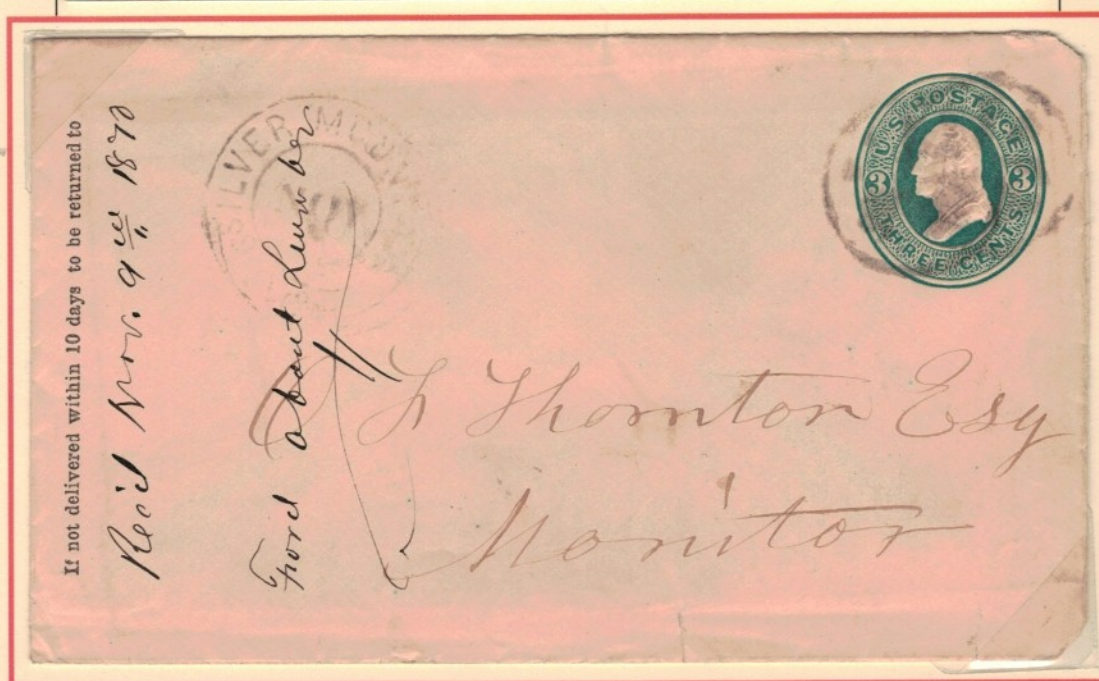 If not delivered within 10 days to be returned to
Rec'd Nov. 9th 1870
Ford about Lumber
SILVER MOUN
NOV
U.S. POSTAGE
3 3
THREE CENTS
Thornton Esq
Monitor